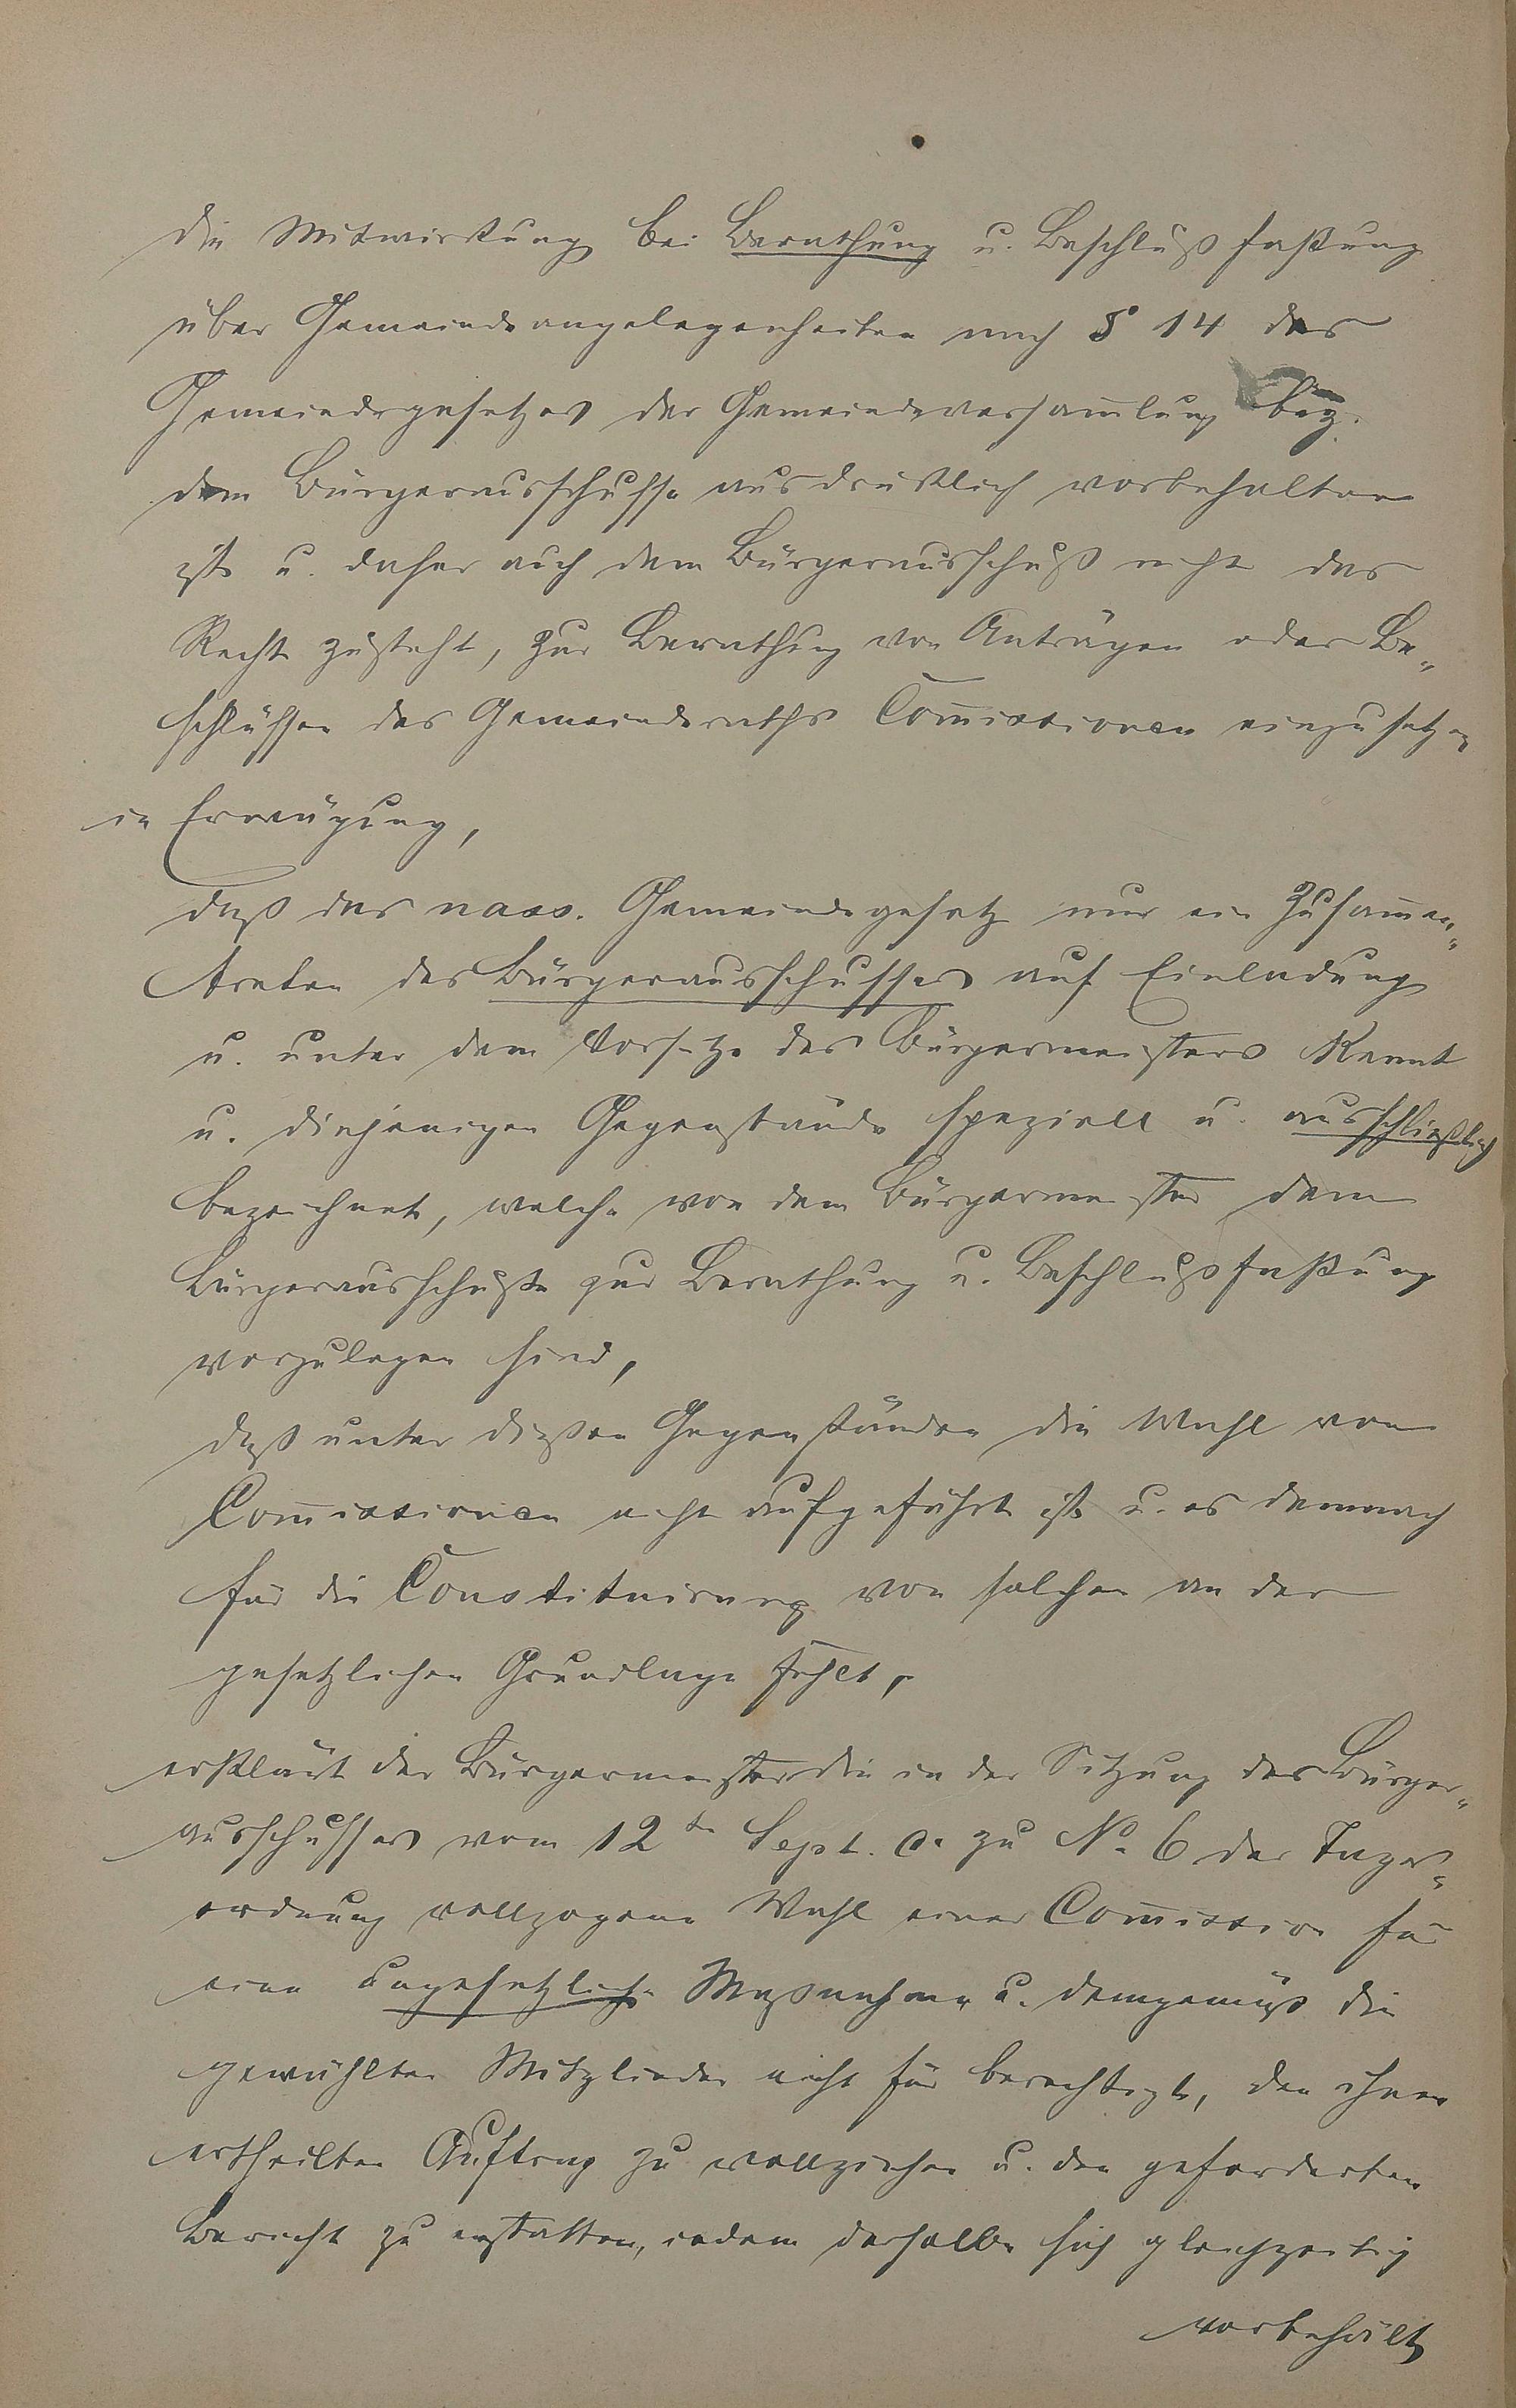 die Mitwirkung bei Berathung u. Beschlußfaßung
über Gemeindeangelegenheiten nach § 14 des
Gemeindegesetzes der Gemeindeversam̅lung bez.
dem Bürgerausschusse ausdrücklich vorbehalten
ist u. daher auch dem Bürgerausschuß nicht das
Recht zusteht, zur Berathung von Anträgen oder Be„
schlüssen des Gemeinderaths Com̅issionen einzusetzen
in Erwägung,
daß das nass. Gemeindegesetz nur ein Zusam̅en„
treten des Bürgerausschusses auf Einladung
u. unter dem Vorsitze des Bürgermeisters kennt
u. diejenigen Gegenstände speziell u. ausschließlich
bezeichnet, welche von dem Bürgermeister dem
Bürgerausschuße zur Berathung u. Beschlußfaßung
vorzulegen sind,
daß unter dießen Gegenständen die Wahl von
Com̅issionen nicht aufgeführt ist u. es demnach
für die Constituirung von solchen an der
gesetzlichen Grundlage fehlt,
erklärt der Bürgermeister die in der Sitzung des Bürger„
ausschusses vom 12ten Sept. c. zu No. 6 der Tages„
ordnung vollzogene Wahl einer Com̅ission für
eine ungesetzliche Maßnahme u. demgemäß die
gewählten Mitglieder nicht für berechtigt, den ihnen
ertheilten Auftrag zu vollziehen u. den geforderten
Bericht zu erstatten, indem derselbe sich gleichzeitig
vorbehält